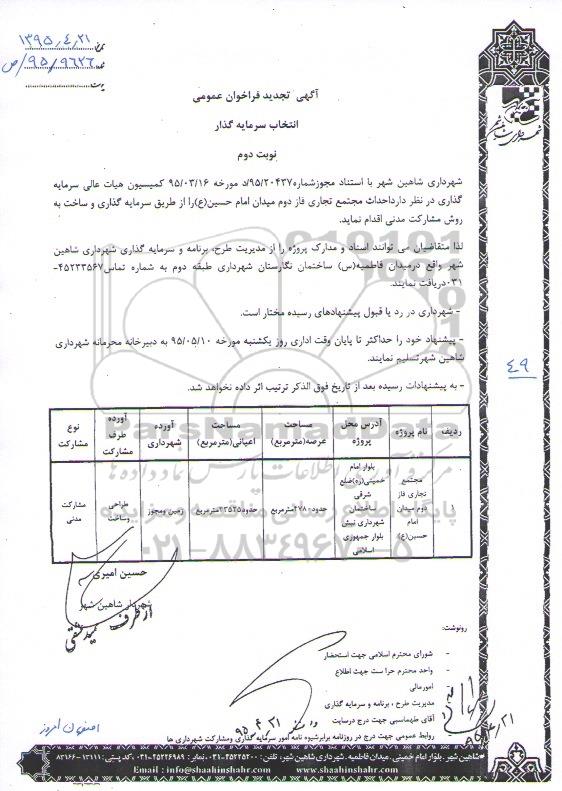 تاریخ ۱۳۹۵٫۴٫۲۱
شماره ۹۵/۹۶۲۶/ص
پیوست
آگهی تجدید فراخوان عمومی
انتخاب سرمایه گذار
نوبت دوم
شهرداری شاهین شهر با استناد مجوزشماره۹۵/۲۰۴۳۷/د مورخه ۹۵/۰۳/۱۶ کمیسیون هیات عالی سرمایه
گذاری در نظر دارداحداث مجتمع تجاری فاز دوم میدان امام حسین(ع)را از طریق سرمایه گذاری و ساخت به
روش مشارکت مدنی اقدام نماید.
لذا متقاضیان می توانند اسناد و مدارک پروژه را از مدیریت طرح، برنامه و سرمایه گذاری شهرداری شاهین
شهر واقع درمیدان فاطمیه(س) ساختمان نگارستان شهرداری طبقه دوم به شماره تماس۴۵۲۲۳۵۶۷-
۰۳۱دریافت نمایند.
- شهرداری در رد یا قبول پیشنهادهای رسیده مختار است.
- پیشنهاد خود را حداکثر تا پایان وقت اداری روز یکشنبه مورخه ۹۵/۰۵/۱۰ به دبیرخانه محرمانه شهرداری
شاهین شهرتسلیم نمایند.
- به پیشنهادات رسیده بعد از تاریخ فوق الذکر ترتیب اثر داده نخواهد شد.
ردیف نام پروژه آدرس محل پروژه مساحت عرصه(مترمربع) مساحت اعیانی(مترمربع) آورده شهرداری آورده طرف مشارکت نوع مشارکت
۱ مجتمع تجاری فاز دوم میدان امام حسین(ع) بلوار امام خمینی(ره)ضلع شرقی ساختمان شهرداری نبش بلوار جمهوری اسلامی حدود۴۷۸۰مترمربع حدود۲۳۵۲۵مترمربع زمین ومجوز طراحی وساخت مشارکت مدنی
حسین امیری
شهردار شاهین شهر
از طرف
رونوشت:
- شورای محترم اسلامی جهت استحضار
- واحد محترم حراست جهت اطلاع
- امورمالی
- مدیریت طرح ، برنامه و سرمایه گذاری
- آقای طهماسبی جهت درج درسایت
- روابط عمومی جهت درج در روزنامه برابرشیوه نامه امور سرمایه گذاری ومشارکت شهرداری ها
۹۵٫۴٫۲۱
اصفهان امروز
۴۹
شاهین شهر، بلوار امام خمینی، میدان فاطمیه، شهرداری شاهین شهر، تلفن: ۰۳۱-۴۵۲۲۵۲۰۰ نمابر: ۰۳۱-۴۵۲۲۶۹۸۹ کد پستی: ۸۳۱۶۶-۱۳۱۱۱
Email : info@shaahinshahr.com www.shaahinshahr.com
ParsNamadData
پایگاه اطلاع رسانی مناقصه و مزایده
۰۲۱-۸۸۳۴۹۶۷۰-۵